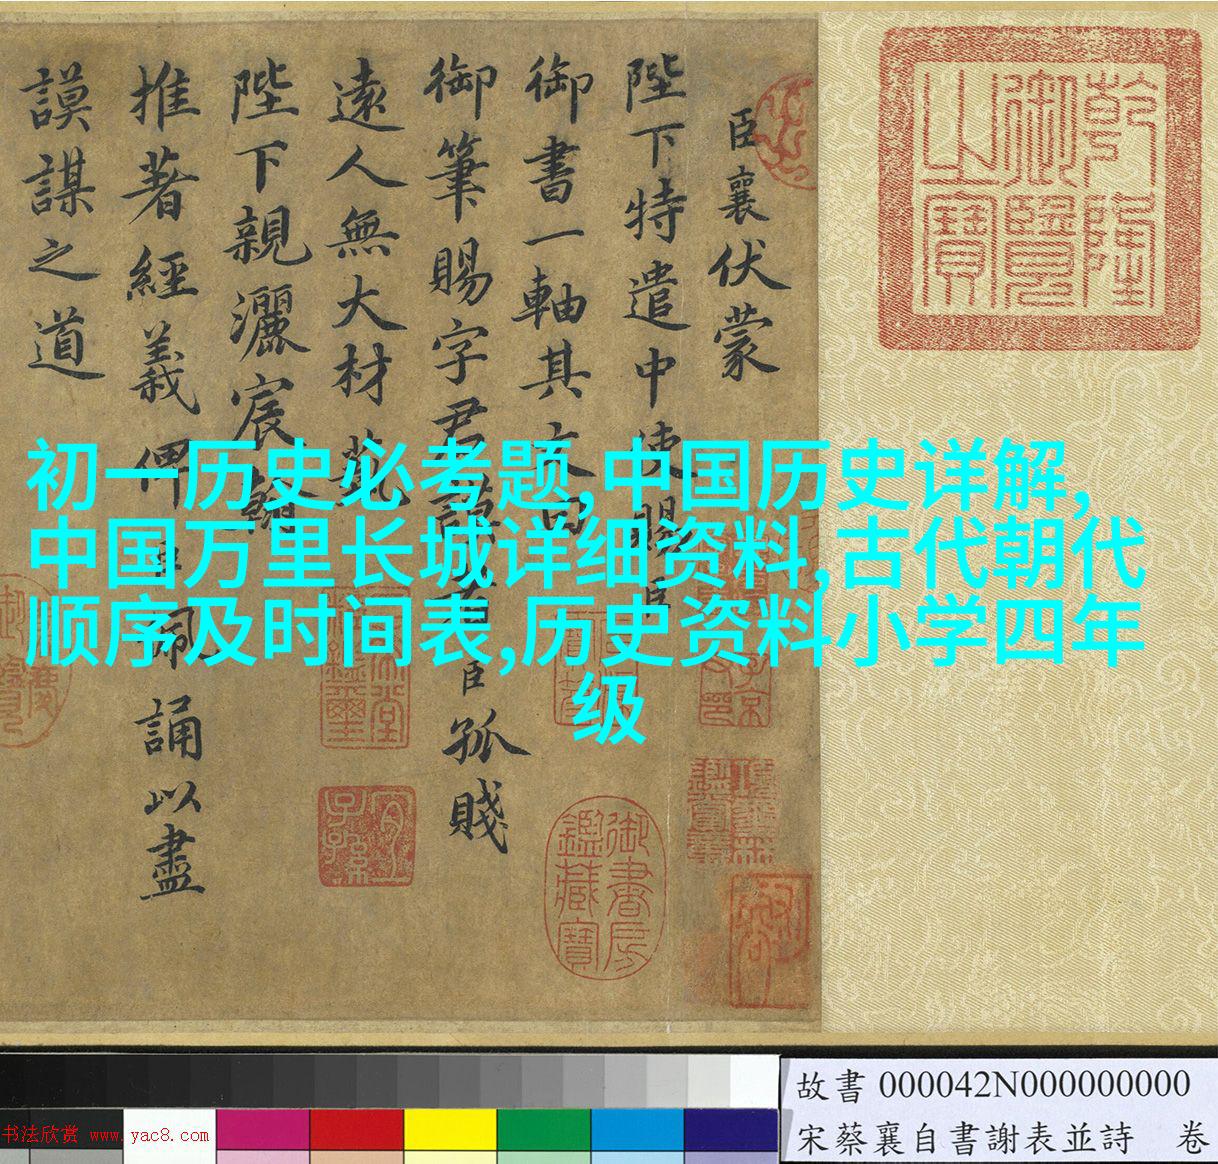 乾隆
御覽
之寶
臣襄伏蒙
陛下特遣中使賜臣
御書一軸其文曰
御筆賜字君謨者臣孤賤
遠人無大材藝
陛下親灑宸翰
推著經義俾臣佩誦以盡
謨謀之道
初一历史必考题,中国历史详解,
中国万里长城详细资料,古代朝代
顺序及时间表,历史资料小学四年
级
三希堂
精鑑璽
宜
子孫
御書房
鑑藏寶
故書 000042N000000000
宋蔡襄自書謝表並詩 卷
书法欣赏 www.yac8.com